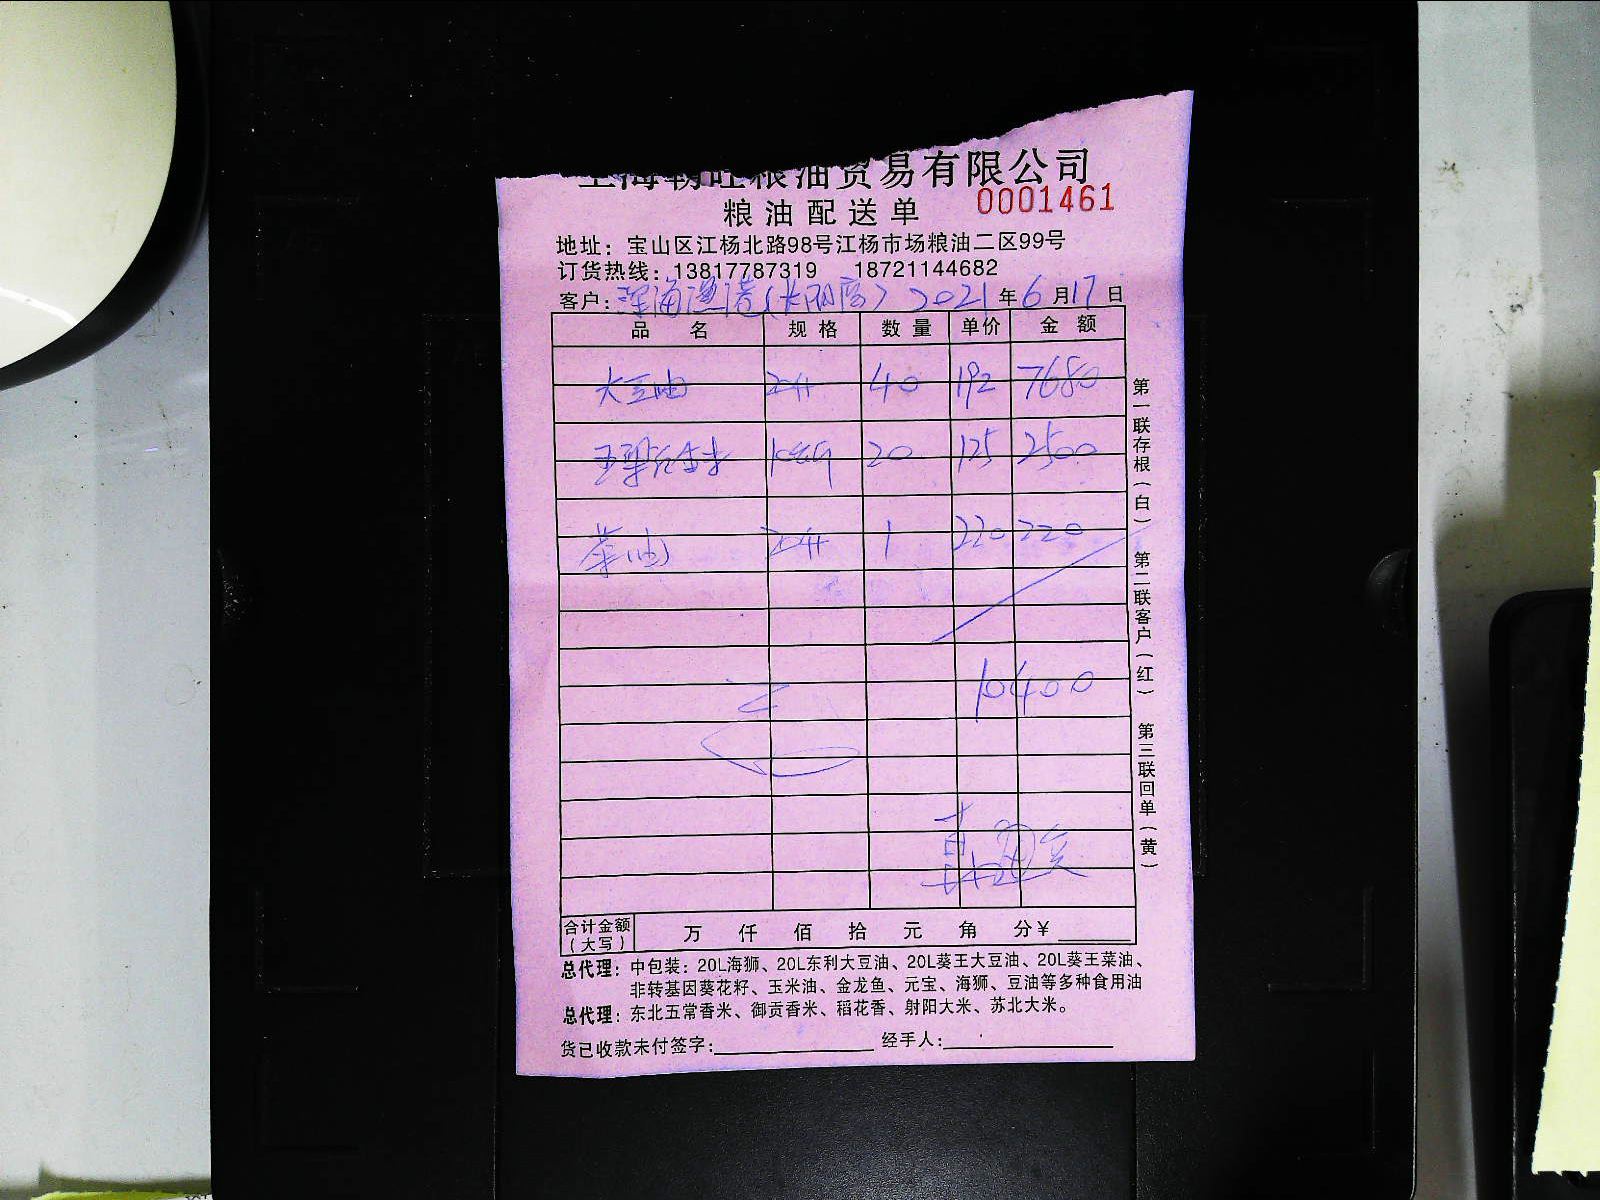 上海朝旺粮油贸易有限公司
粮油配送单 0001461
地址：宝山区江杨北路98号江杨市场粮油二区99号
订货热线：13817787319 18721144682
客户：深海渔港（长阳店） 2021年6月17日
品名 规格 数量 单价 金额
大豆油 20升 40 192 7680
10kg 20 125 2500
菜油 20升 1 220 220
10400
第一联存根（白） 第二联客户（红） 第三联回单（黄）
合计金额（大写） 万 仟 佰 拾 元 角 分￥
总代理：中包装：20L海狮、20L东利大豆油、20L葵王大豆油、20L葵王菜油、
非转基因葵花籽、玉米油、金龙鱼、元宝、海狮、豆油等多种食用油
总代理：东北五常香米、御贡香米、稻花香、射阳大米、苏北大米。
货已收款未付签字： 经手人：